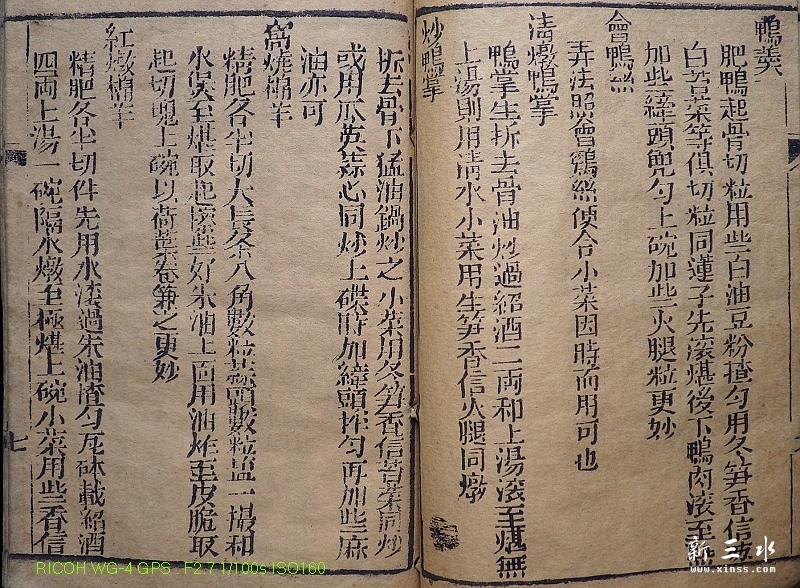 鴨羹
肥鴨起骨切粒用些白油豆粉揸勻用冬筍香信
白菜等俱切粒同蓮子先滾煁後下鴨肉滾至
加些縴頭兜勻上碗加些火腿粒更妙
會鴨絲
弄法照會鷄絲便合小菜因時而用可也
清燉鴨掌
鴨掌生拆去骨油炒過紹酒二両和上湯滾至煁無
上湯則用清水小菜用生筍香信火腿同燉
炒鴨掌
拆去骨下猛油鍋炒之小菜用冬筍香信菜同炒
或用瓜英蒜心同炒上碟時加縴頭拌勻再加些麻
油亦可
窩燒棉羊
精肥各半切大長条八角數粒蒜頭數粒塩一撮和
水煲至煁取起搽些好朱油上面用油炸至皮脆取
起切塊上碗以荷葉卷兼之更妙
紅燉棉羊
精肥各半切件先用水滾過朱油揸勻瓦砵載紹酒
四両上湯一碗隔水燉至極煁上碗小菜用些香信
七
RICOH WG-4 GPS F2.7 1/100s ISO160
新三水
www.xinss.com